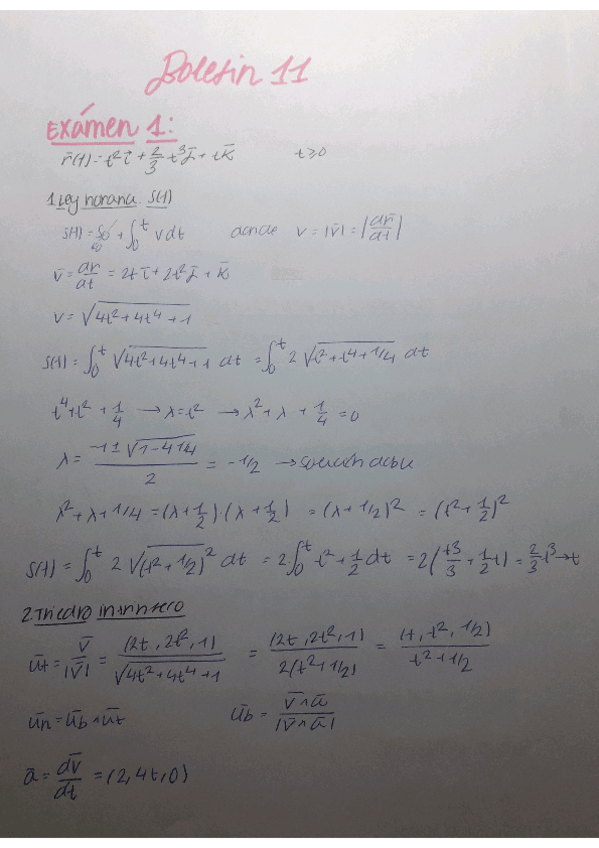 Boletin 11
Exámen 1:
r̄(t) = t² ī + 2/3 t³ j̄ + t k̄ t ≥ 0
1. Ley horaria. s(t)
s(t) = s₀ + ∫₀ᵗ v dt donde v = |v̄| = |dr̄/dt|
v̄ = dr̄/dt = 2t ī + 2t² j̄ + k̄
v = √(4t² + 4t⁴ + 1)
s(t) = ∫₀ᵗ √(4t² + 4t⁴ + 1) dt = ∫₀ᵗ 2 √(t² + t⁴ + 1/4) dt
t⁴ + t² + 1/4 → λ = t² → λ² + λ + 1/4 = 0
λ = (-1 ± √(1 - 4·1/4))/2 = -1/2 → solución doble
λ² + λ + 1/4 = (λ + 1/2)·(λ + 1/2) = (λ + 1/2)² = (t² + 1/2)²
s(t) = ∫₀ᵗ 2 √(t² + 1/2)² dt = 2·∫₀ᵗ t² + 1/2 dt = 2(t³/3 + 1/2 t) = 2/3 t³ + t
2. Triedro intrínseco
ūt = v̄/|v̄| = (2t, 2t², 1)/√(4t² + 4t⁴ + 1) = (2t, 2t², 1)/2(t² + 1/2) = (t, t², 1/2)/t² + 1/2
ūn = ūb ∧ ūt ūb = v̄ ∧ ā/|v̄ ∧ ā|
ā = dv̄/dt = (2, 4t, 0)